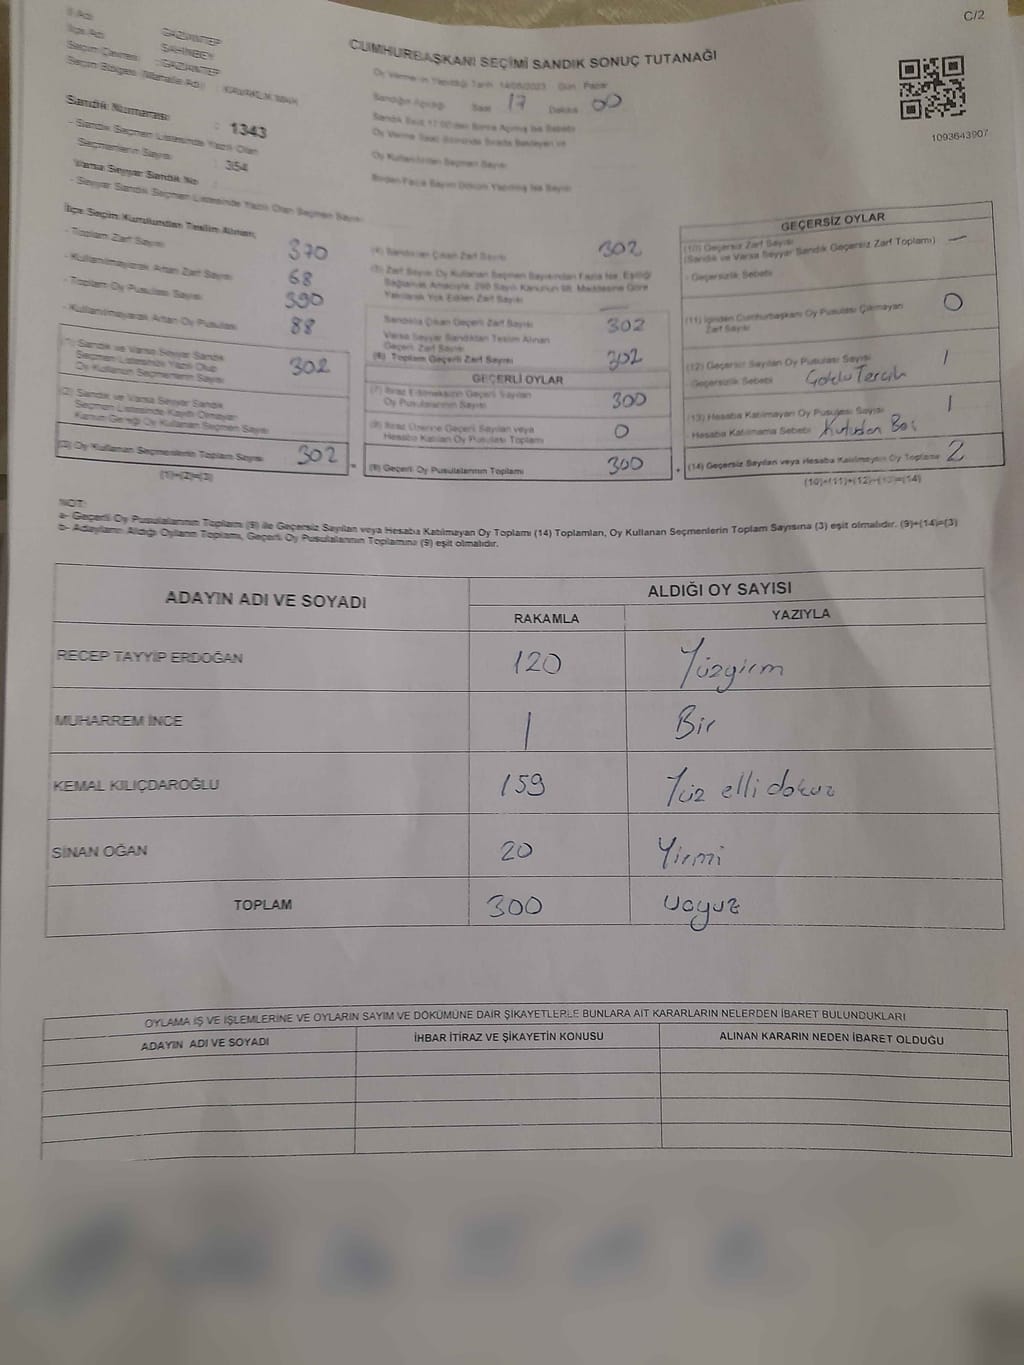 C/2
İl Adı : GAZİANTEP
İlçe Adı : ŞAHİNBEY
Seçim Çevresi : GAZİANTEP
Seçim Bölgesi (Mahalle Adı) : KAVAKLIK MAH.
CUMHURBAŞKANI SEÇİMİ SANDIK SONUÇ TUTANAĞI
Oy Vermenin Yapıldığı Tarih 14/05/2023 Gün Pazar
Sandığın Açıldığı Saat 17 Dakika 00
Sandık Saat 17:00'den Sonra Açılmış İse Sebebi
Oy Verme Saati Bitiminde Sırada Bekleyen ve
Oy Kullandırılan Seçmen Sayısı
Birden Fazla Sayım Döküm Yapılmış İse Sayısı
1093643907
Sandık Numarası : 1343
- Sandık Seçmen Listesinde Yazılı Olan
Seçmenlerin Sayısı : 354
Varsa Seyyar Sandık No
- Seyyar Sandık Seçmen Listesinde Yazılı Olan Seçmen Sayısı
İlçe Seçim Kurulundan Teslim Alınan;
- Toplam Zarf Sayısı 370
- Kullanılmayarak Artan Zarf Sayısı 68
- Toplam Oy Pusulası Sayısı 390
- Kullanılmayarak Artan Oy Pusulası 88
(1) Sandık ve Varsa Seyyar Sandık
Seçmen Listesinde Yazılı Olup
Oy Kullanan Seçmenlerin Sayısı 302
(2) Sandık ve Varsa Seyyar Sandık
Seçmen Listesinde Kayıtlı Olmayan
Kanun Gereği Oy Kullanan Seçmen Sayısı
(3) Oy Kullanan Seçmenlerin Toplam Sayısı 302
(1)+(2)=(3)
(4) Sandıktan Çıkan Zarf Sayısı 302
(5) Zarf Sayısı Oy Kullanan Seçmen Sayısından Fazla İse, Eşitliği
Sağlamak Amacıyla; 298 Sayılı Kanunun 98. Maddesine Göre
Yakılarak Yok Edilen Zarf Sayısı
Sandıkta Çıkan Geçerli Zarf Sayısı 302
Varsa Seyyar Sandıktan Teslim Alınan
Geçerli Zarf Sayısı
(6) Toplam Geçerli Zarf Sayısı 302
GEÇERLİ OYLAR
(7) İtiraz Edilmeksizin Geçerli Sayılan
Oy Pusulalarının Sayısı 300
(8) İtiraz Üzerine Geçerli Sayılan veya
Hesaba Katılan Oy Pusulası Toplamı 0
(9) Geçerli Oy Pusulalarının Toplamı 300
GEÇERSİZ OYLAR
(10) Geçersiz Zarf Sayısı
(Sandık ve Varsa Seyyar Sandık Geçersiz Zarf Toplamı) —
- Geçersizlik Sebebi
(11) İçinden Cumhurbaşkanı Oy Pusulası Çıkmayan
Zarf Sayısı 0
(12) Geçersiz Sayılan Oy Pusulası Sayısı 1
- Geçersizlik Sebebi Goklu Tercih
(13) Hesaba Katılmayan Oy Pusulası Sayısı 1
- Hesaba Katılmama Sebebi Kutudan Boş
(14) Geçersiz Sayılan veya Hesaba Katılmayan Oy Toplamı 2
(10)+(11)+(12)+(13)=(14)
NOT:
a- Geçerli Oy Pusulalarının Toplamı (9) ile Geçersiz Sayılan veya Hesaba Katılmayan Oy Toplamı (14) Toplamları, Oy Kullanan Seçmenlerin Toplam Sayısına (3) eşit olmalıdır. (9)+(14)=(3)
b- Adayların Aldığı Oyların Toplamı, Geçerli Oy Pusulalarının Toplamına (9) eşit olmalıdır.
ADAYIN ADI VE SOYADI
ALDIĞI OY SAYISI
RAKAMLA YAZIYLA
RECEP TAYYİP ERDOĞAN 120 Yüzgirm
MUHARREM İNCE 1 Bir
KEMAL KILIÇDAROĞLU 159 Yüz elli dokuz
SİNAN OĞAN 20 Yirmi
TOPLAM 300 uçyuz
OYLAMA İŞ VE İŞLEMLERİNE VE OYLARIN SAYIM VE DÖKÜMÜNE DAİR ŞİKAYETLERLE BUNLARA AİT KARARLARIN NELERDEN İBARET BULUNDUKLARI
ADAYIN ADI VE SOYADI İHBAR İTİRAZ VE ŞİKAYETİN KONUSU ALINAN KARARIN NEDEN İBARET OLDUĞU